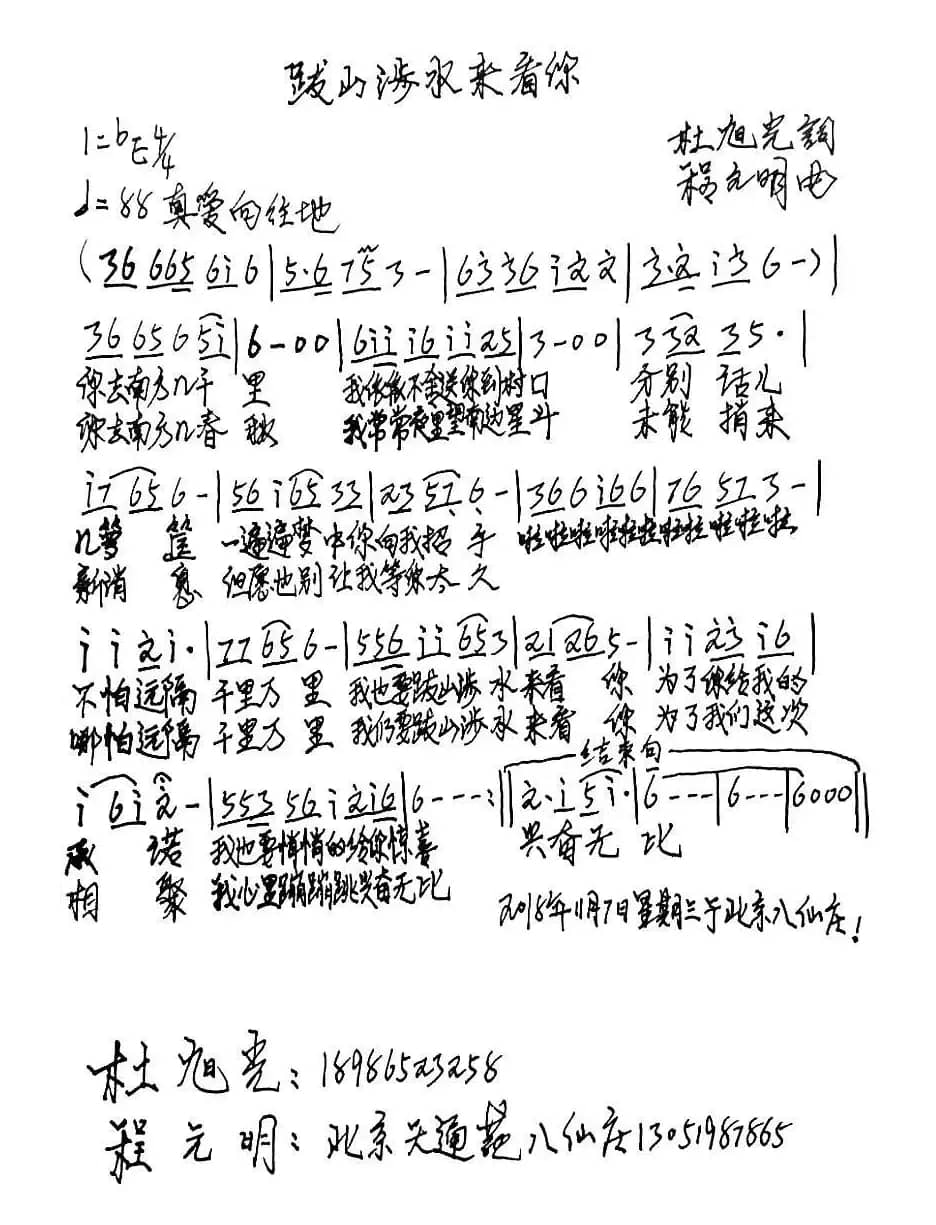 跋山涉水来看你
1=bE4/4
杜旭光詞
程元明曲
♩=88 真爱向往地
(36 665 6i 6|5·6 75 3-|63 36 i2 2|3·2 i3 6-)|
36 65 6 5i|6-00|6ii i6 ii 25|3-00|3 32 35·|
你去南方几千 里 我依依不舍送你到村口 分别 话儿
你去南方几春 秋 我常常夜里望南边星斗 未能 捎来
i7 65 6-|56 i65 33|23 57 6-|366 i66|76 57 3-|
几箩 筐 一遍遍梦中你向我招 手 啦啦啦啦啦啦啦啦啦啦啦
新消 息 但愿也别让我等你太 久
i i 2 i·|77 65 6-|556 ii 65 3|21 26 5-|i i 23 i6|
不怕远隔 千里万 里 我也要跋山涉水来看 你 为了你给我的
哪怕远隔 千里万 里 我们要跋山涉水来看 你 为了我们这次
结束句
i 6 i 2-|553 56 i 2i6|6---:‖2·i 5 i·|6---|6---|6000‖
承 诺 我也要悄悄的给你惊喜 兴奋无 比
相 聚 我心里蹦蹦跳兴奋无比
2018年11月7日星期三于北京八仙庄!
杜旭光:18986523258
程元明:北京天通苑八仙庄13051987865